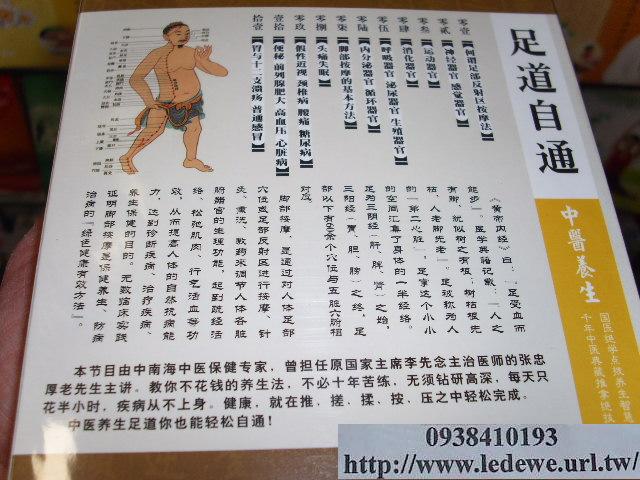 足道自通
中醫養生
国医绝学点拨养生智慧
千年中医典藏推拿绝技
零壹【何谓足部反射区按摩法】
零贰【神经器官 感觉器官】
零叁【运动器官】
零肆【消化器官】
零伍【呼吸器官 泌尿器官 生殖器官】
零陆【内分泌器官 循环器官】
零柒【脚部按摩的基本方法】
零捌【头痛失眠】
零玖【假性近视 颈椎病 腰痛 糖尿病】
壹拾【便秘 前列腺肥大 高血压 心脏病】
拾壹【胃与十二支溃疡 普通感冒】
《黄帝内经》曰：“足受血而
能步”。医学典籍记载：“人之
有脚，犹似树之有根；树枯根先
枯、人老脚先老”。足被称为人
的“第二心脏”，足掌这个小小
的空间汇集了身体的一半经络。
足为三阴经（肝、脾、肾）之始，
三阳经（胃、胆、膀）之终，足
部以下有
余个穴位与五脏六腑相
对应。
脚部按摩，是通过对人体足部
穴位或足部反射区进行按摩、针
灸、熏洗、敷药来调节人体各脏
腑器官的生理功能，起到疏经活
络、松弛肌肉、行气活血等功
效，从而提高人体的自然抗病能
力，达到诊断疾病、治疗疾病、
养生保健的目的。无数临床实践
证明脚部按摩是保健养生、防病
治病的“绿色健康有效方法”。
本节目由中南海中医保健专家，曾担任原国家主席李先念主治医师的张忠
厚老先生主讲。教你不花钱的养生法，不必十年苦练，无须钻研高深，每天只
花半小时，疾病从不上身。健康，就在推、搓、揉、按、压之中轻松完成。
中医养生足道你也能轻松自通！
0938410193
http://www.ledewe.url.tw/